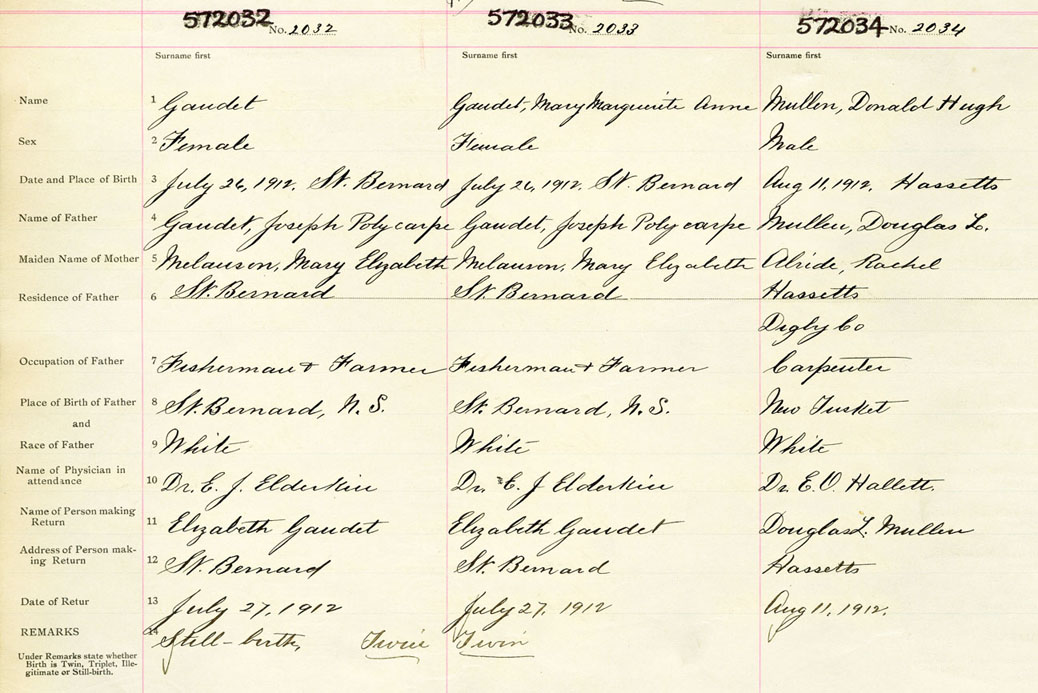 572032 No. 2032 572033 No. 2033 572034 No. 2034
Surname first Surname first Surname first
Name 1 Gaudet Gaudet, Mary Marguerite Anne Mullen, Donald Hugh
Sex 2 Female Female Male
Date and Place of Birth 3 July 26, 1912. St. Bernard July 26, 1912. St. Bernard Aug 11, 1912. Hassetts
Name of Father 4 Gaudet, Joseph Polycarpe Gaudet, Joseph Polycarpe Mullen, Douglas L.
Maiden Name of Mother 5 Melanson, Mary Elizabeth Melanson, Mary Elizabeth Rachel
Residence of Father 6 St. Bernard St. Bernard Hassetts
Digby Co
Occupation of Father 7 Fisherman + Farmer Fisherman + Farmer Carpenter
Place of Birth of Father 8 St. Bernard, N.S. St. Bernard, N.S. New Tusket
and
Race of Father 9 White White White
Name of Physician in
attendance 10 Dr. E. J. Elderkin Dr. E. J Elderkin Dr. E. O. Hallett.
Name of Person making
Return 11 Elizabeth Gaudet Elizabeth Gaudet Douglas L. Mullen
Address of Person mak-
ing Return 12 St. Bernard St. Bernard Hassetts
Date of Retur 13 July 27, 1912 July 27, 1912 Aug 11, 1912.
REMARKS Still-birth, Twin Twin
Under Remarks state whether
Birth is Twin, Triplet, Ille-
gitimate or Still-birth.